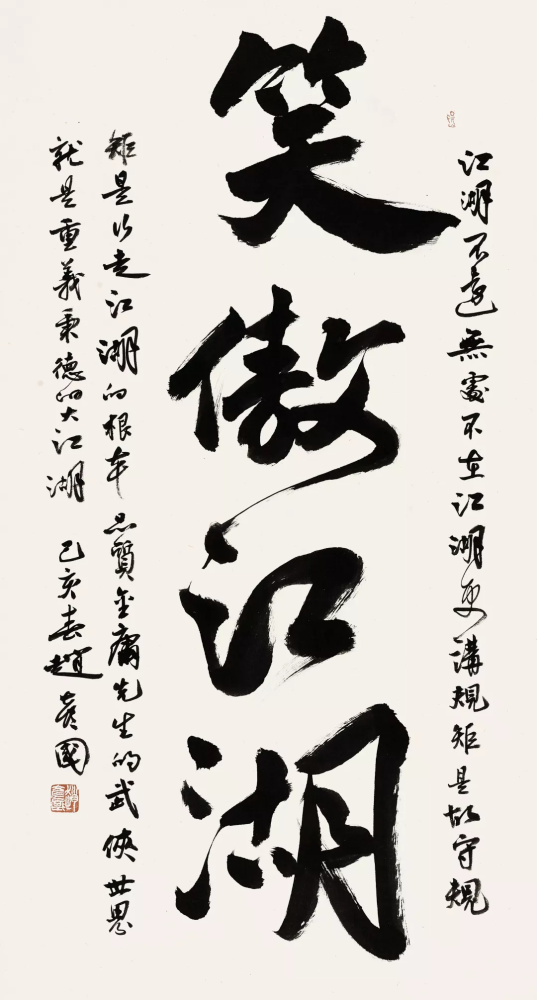 江湖不遠無處不在江湖更講規矩是故守規
笑傲江湖
矩是行走江湖的根本品質金庸先生的武俠世界
就是重義秉德的大江湖 己亥春趙國